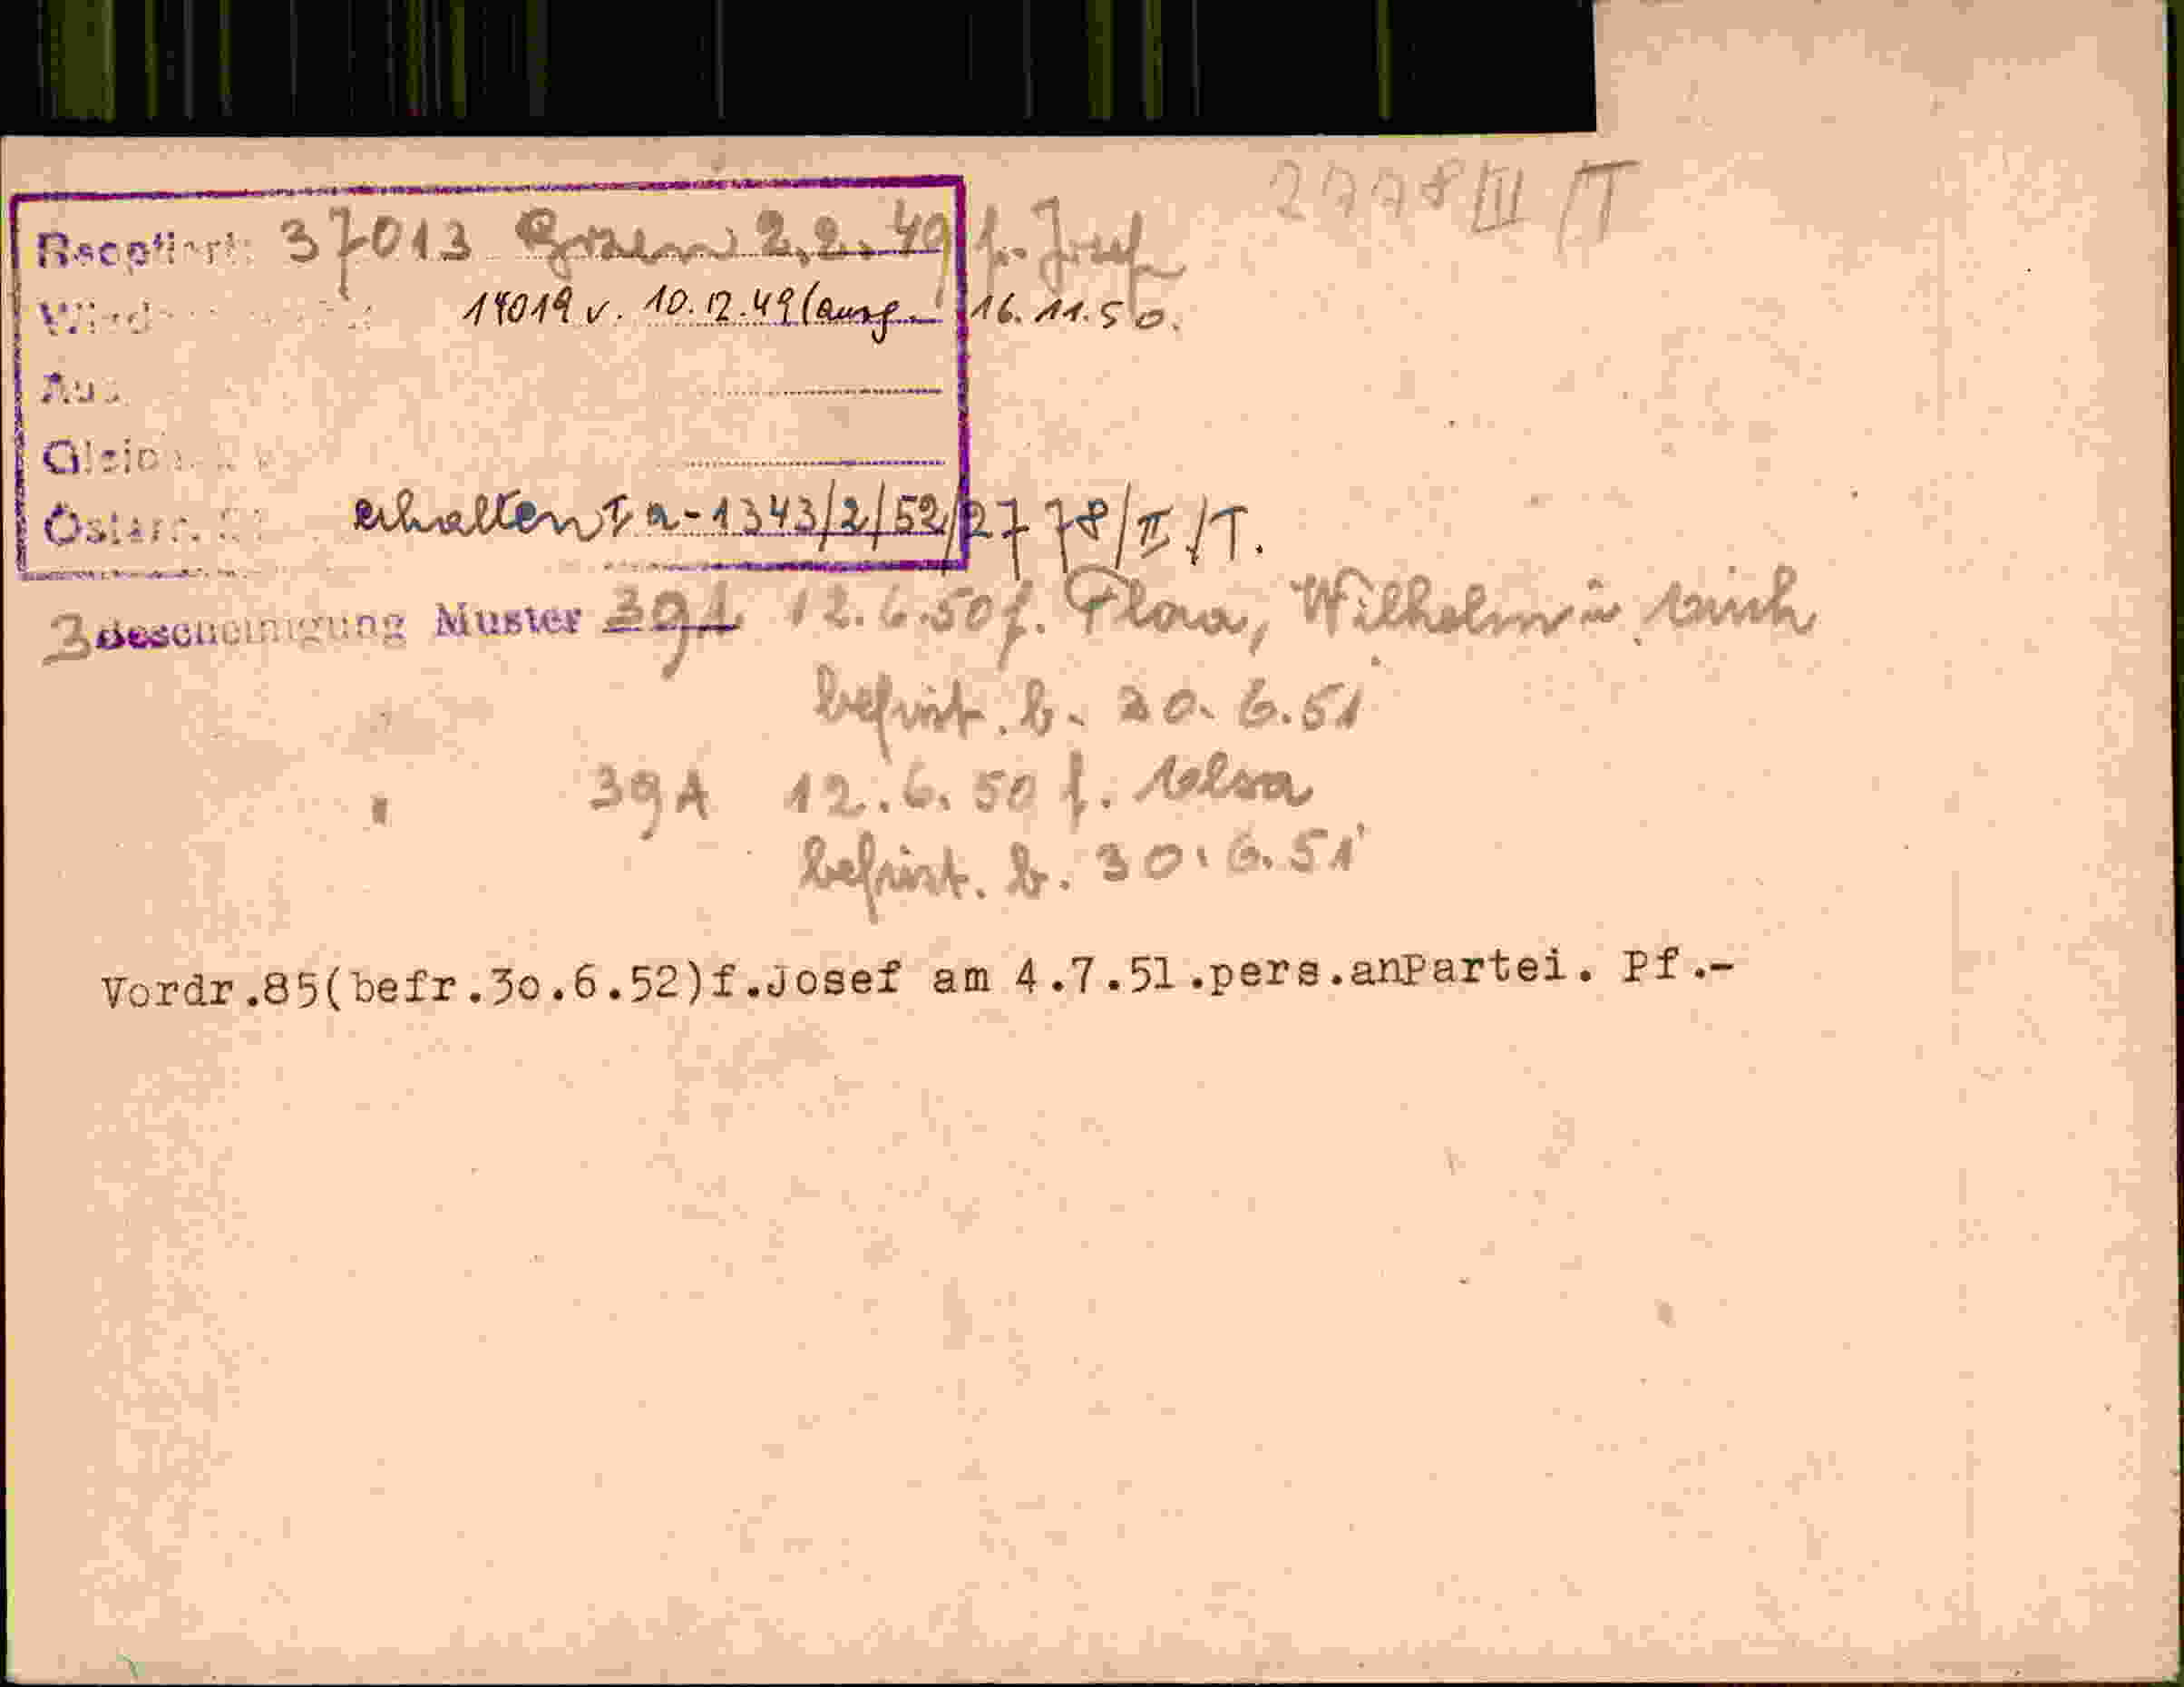 2778/III/T
37013 2.2.49 f. Josef
14019 v. 10.12.49 (ausg. 16.11.50.
erhalten Ia-1343/2/52/2778/II/T.
3 Bescheinigung Muster 391 12.6.50 f. Flora, Wilhelm u. Erich
befrist. b. 30.6.51
39A 12.6.50 f.
befrist. b. 30.6.51
Vordr.85(befr.30.6.52)f.Josef am 4.7.51.pers.anPartei. Pf.-